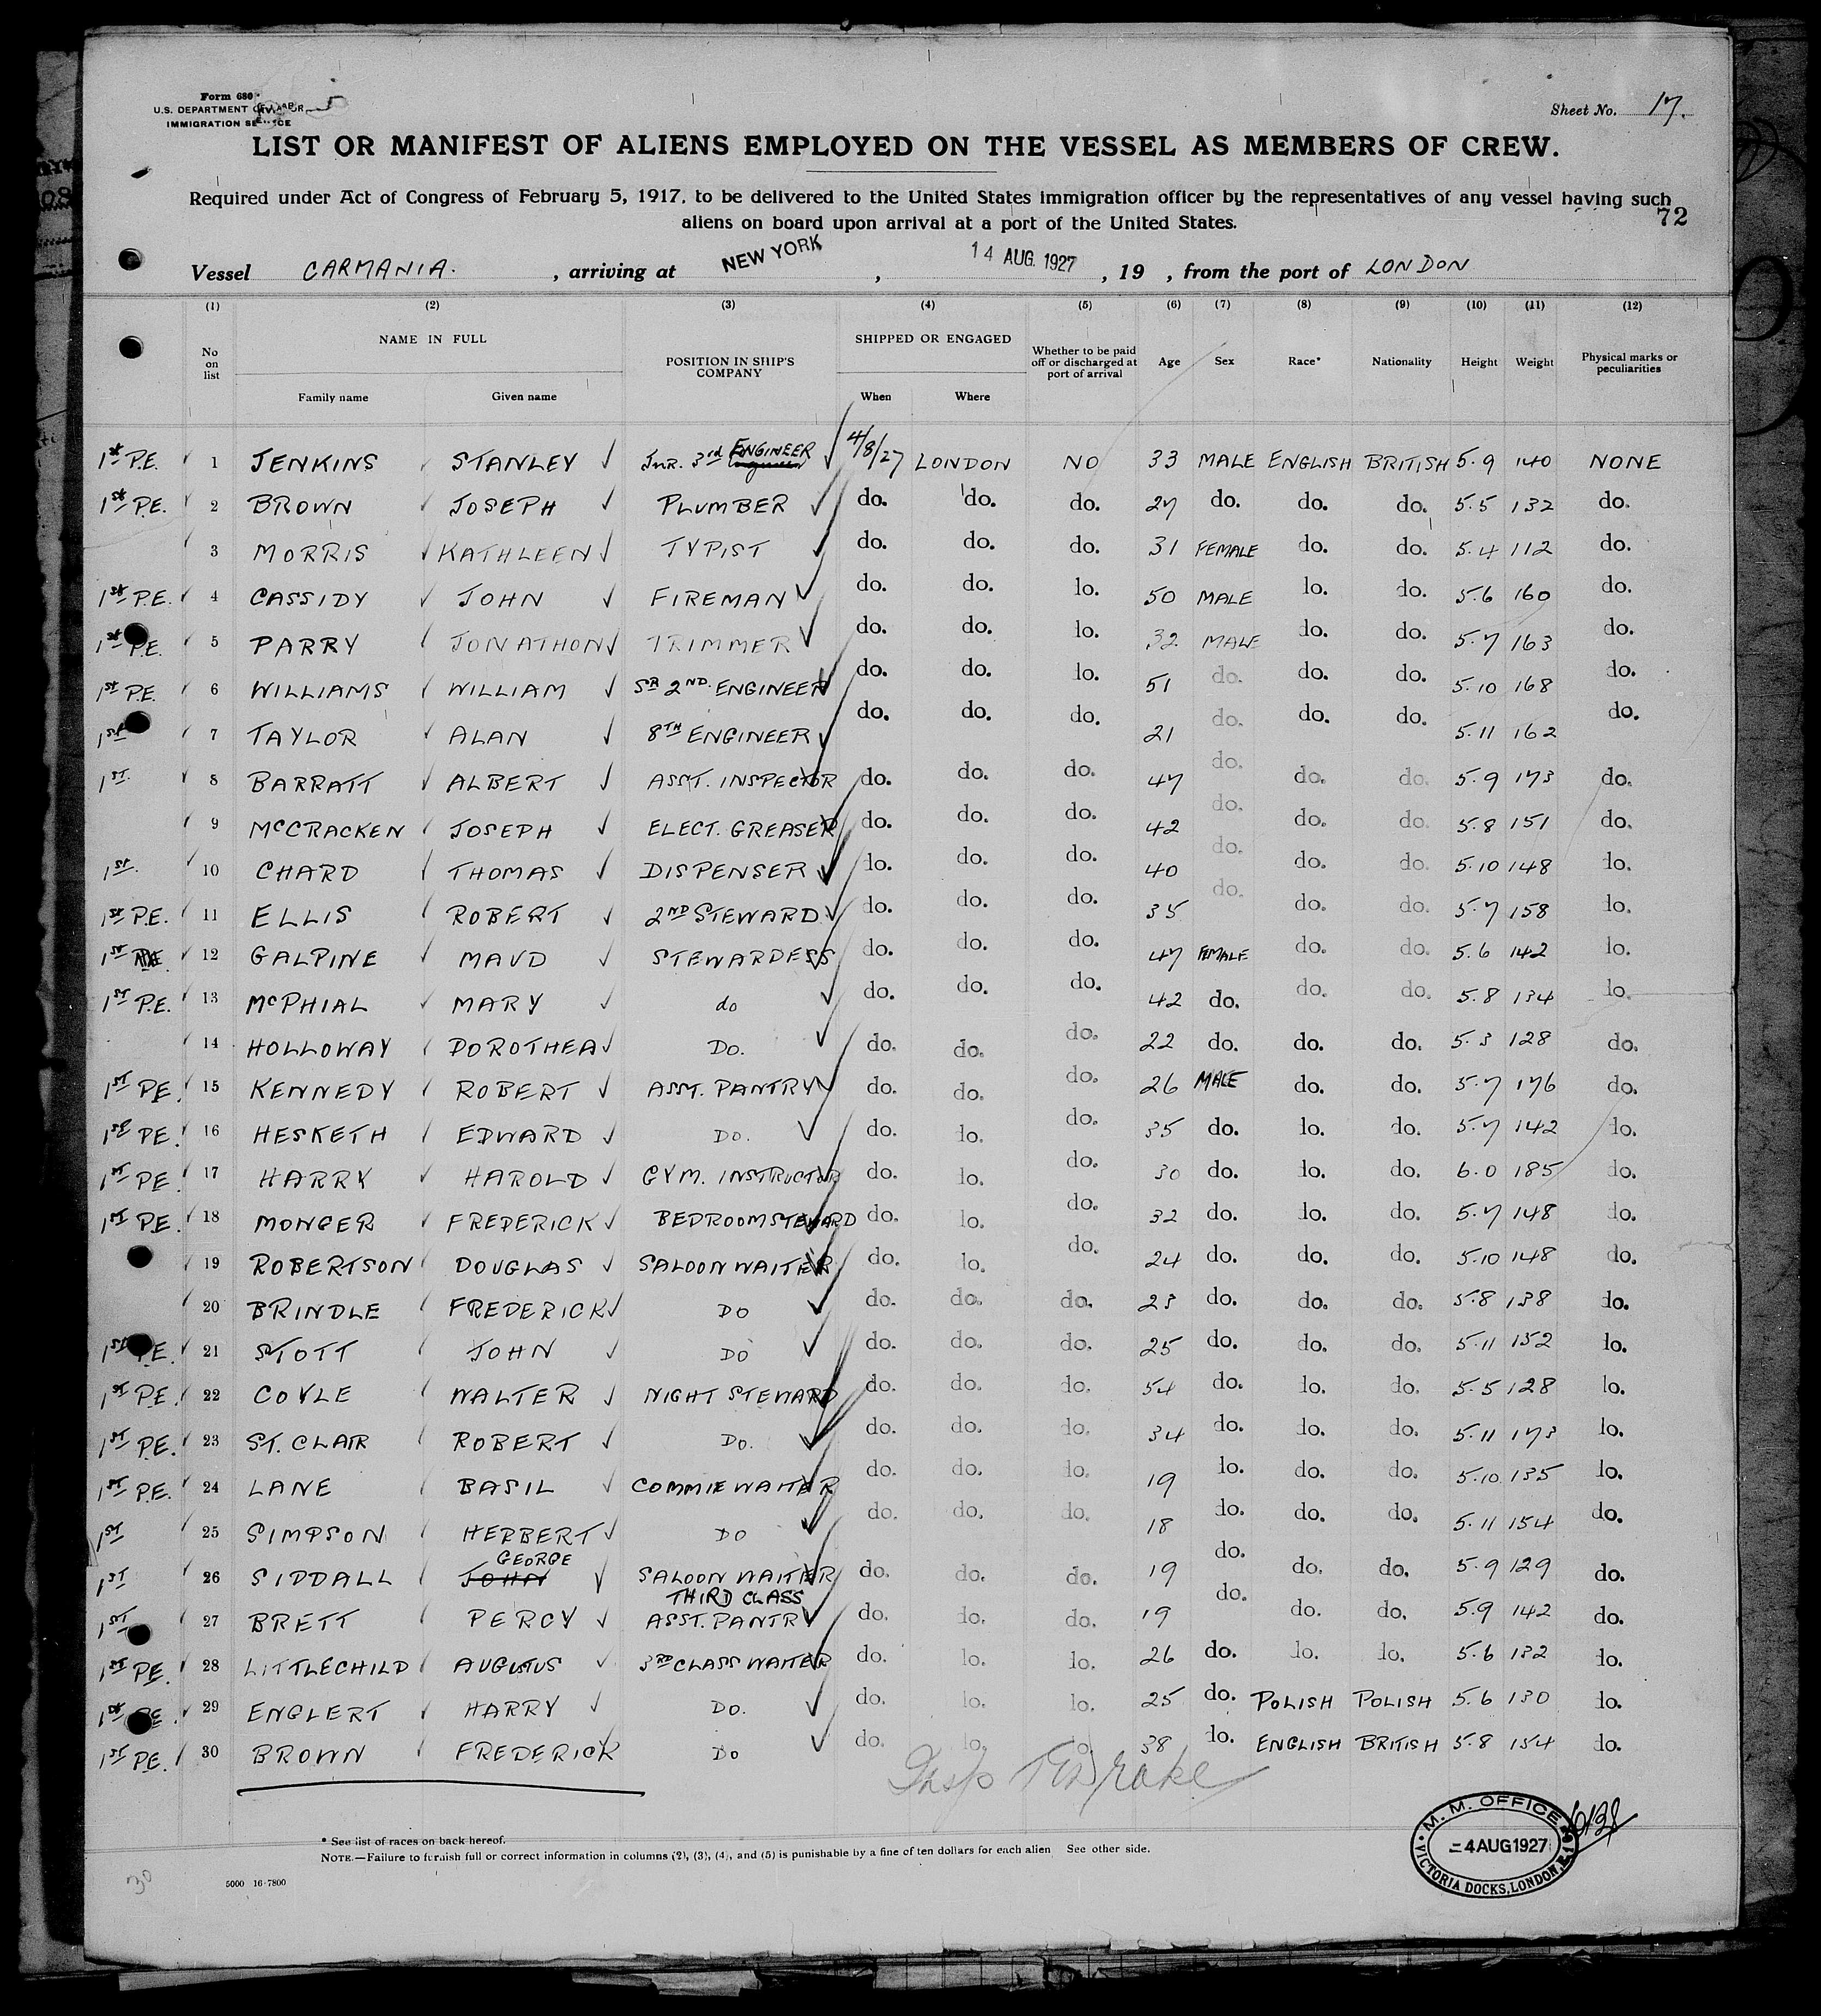 Form 680
U.S. DEPARTMENT OF LABOR
IMMIGRATION SERVICE
Sheet No. 17.
LIST OR MANIFEST OF ALIENS EMPLOYED ON THE VESSEL AS MEMBERS OF CREW.
Required under Act of Congress of February 5, 1917, to be delivered to the United States immigration officer by the representatives of any vessel having such
aliens on board upon arrival at a port of the United States.
72
Vessel CARMANIA. , arriving at NEW YORK , 14 AUG. 1927 , 19 , from the port of LONDON
(1) (2) (3) (4) (5) (6) (7) (8) (9) (10) (11) (12)
No on list NAME IN FULL Family name Given name POSITION IN SHIP'S COMPANY SHIPPED OR ENGAGED When Where Whether to be paid off or discharged at port of arrival Age Sex Race* Nationality Height Weight Physical marks or peculiarities
1st P.E. 1 JENKINS STANLEY JNR. 3rd ENGINEER 4/8/27 LONDON NO 33 MALE ENGLISH BRITISH 5.9 140 NONE
1st P.E. 2 BROWN JOSEPH PLUMBER do. do. do. 27 do. do. do. 5.5 132 do.
3 MORRIS KATHLEEN TYPIST do. do. do. 31 FEMALE do. do. 5.4 112 do.
1st P.E. 4 CASSIDY JOHN FIREMAN do. do. lo. 50 MALE lo. do. 5.6 160 do.
1st P.E. 5 PARRY JONATHON TRIMMER do. do. lo. 32 MALE lo. do. 5.7 163 do.
1st P.E. 6 WILLIAMS WILLIAM SR 2ND. ENGINEER do. do. lo. 51 do. do. do. 5.10 168 do.
1st 7 TAYLOR ALAN 8TH ENGINEER do. do. do. 21 do. do. do. 5.11 162 do.
1ST. 8 BARRATT ALBERT ASST. INSPECTOR do. do. do. 47 do. do. do. 5.9 173 do.
9 McCRACKEN JOSEPH ELECT. GREASER do. do. do. 42 do. do. do. 5.8 151 do.
1st. 10 CHARD THOMAS DISPENSER lo. do. do. 40 do. do. do. 5.10 148 lo.
1st P.E. 11 ELLIS ROBERT 2ND STEWARD. do. do. do. 35 do. do. do. 5.7 158 lo.
1ST 12 GALPINE MAUD STEWARDESS do. do. do. 47 FEMALE do. do. 5.6 142 lo.
1ST P.E. 13 McPHIAL MARY do do. do. do. 42 do. do. do. 5.8 134 lo.
14 HOLLOWAY DOROTHEA DO. do. do. do. 22 do. do. do. 5.3 128 do.
1ST P.E. 15 KENNEDY ROBERT ASST. PANTRY do. do. do. 26 MALE do. do. 5.7 176 do.
1st P.E. 16 HESKETH EDWARD DO. do. lo. do. 35 do. lo. do. 5.7 142 lo.
1ST P.E. 17 HARRY HAROLD GYM. INSTRUCTOR do. lo. do. 30 do. lo. do. 6.0 185 do.
1ST P.E. 18 MONGER FREDERICK BEDROOM STEWARD do. lo. do. 32 do. lo. do. 5.7 148 do.
19 ROBERTSON DOUGLAS SALOON WAITER do. lo. do. 24 do. do. do. 5.10 148 do.
20 BRINDLE FREDERICK DO do. do. do. 23 do. do. do. 5.8 138 do.
1ST P.E. 21 STOTT JOHN DO do. do. do. 25 do. do. do. 5.11 152 lo.
1ST P.E. 22 COYLE WALTER NIGHT STEWARD do. do. do. 54 do. lo. do. 5.5 128 lo.
1ST P.E. 23 ST. CLAIR ROBERT DO. do. do. lo. 34 do. do. do. 5.11 173 lo.
1ST P.E. 24 LANE BASIL COMMIE WAITER do. do. lo. 19 lo. do. do. 5.10 135 lo.
1ST 25 SIMPSON HERBERT DO do. do. do. 18 do. do. do. 5.11 154 do.
1ST 26 SIDDALL JOHN GEORGE SALOON WAITER do. do. do. 19 do. do. do. 5.9 129 do.
1ST 27 BRETT PERCY THIRD CLASS ASST. PANTRY do. do. do. 19 do. do. do. 5.9 142 do.
1ST P.E. 28 LITTLECHILD AUGUSTUS 3RD CLASS WAITER do. lo. lo. 26 do. lo. lo. 5.6 132 lo.
1st P.E. 29 ENGLERT HARRY DO. do. lo. lo. 25 do. POLISH POLISH 5.6 130 lo.
1ST P.E. 30 BROWN FREDERICK DO do. lo. 38 lo. ENGLISH BRITISH 5.8 154 do.
Insp Drake
M. M. OFFICE
4 AUG 1927
VICTORIA DOCKS, LONDON, E.16
* See list of races on back hereof.
NOTE.—Failure to furnish full or correct information in columns (2), (3), (4), and (5) is punishable by a fine of ten dollars for each alien See other side.
30
5000 16-7800